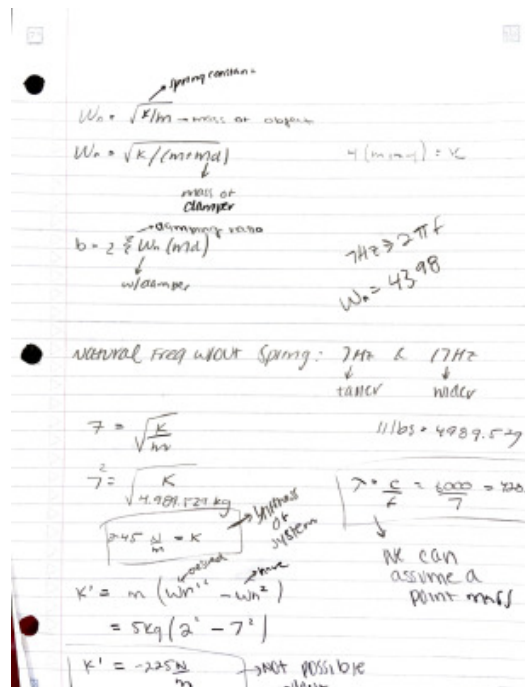 spring constant
Wn = √K/m → mass of object
Wn = √K/(m+md)
mass of
damper
damping ratio
b = 2 ξ Wn (md)
w/damper
7Hz → 2πf
Wn = 43.98
Natural Freq w/out Spring: 7Hz & 17Hz
taller wider
7 = √K/m
11 lbs = 4989.52g
7² = √K/4.989.529 kg
245 N/m = K → stiffness
of
system
λ = c/f = 6000/7 =
We can
assume a
point mass
desired have
K' = m (Wn'² - Wn²)
= 5kg (2² - 7²)
K' = -225 N/m → not possible